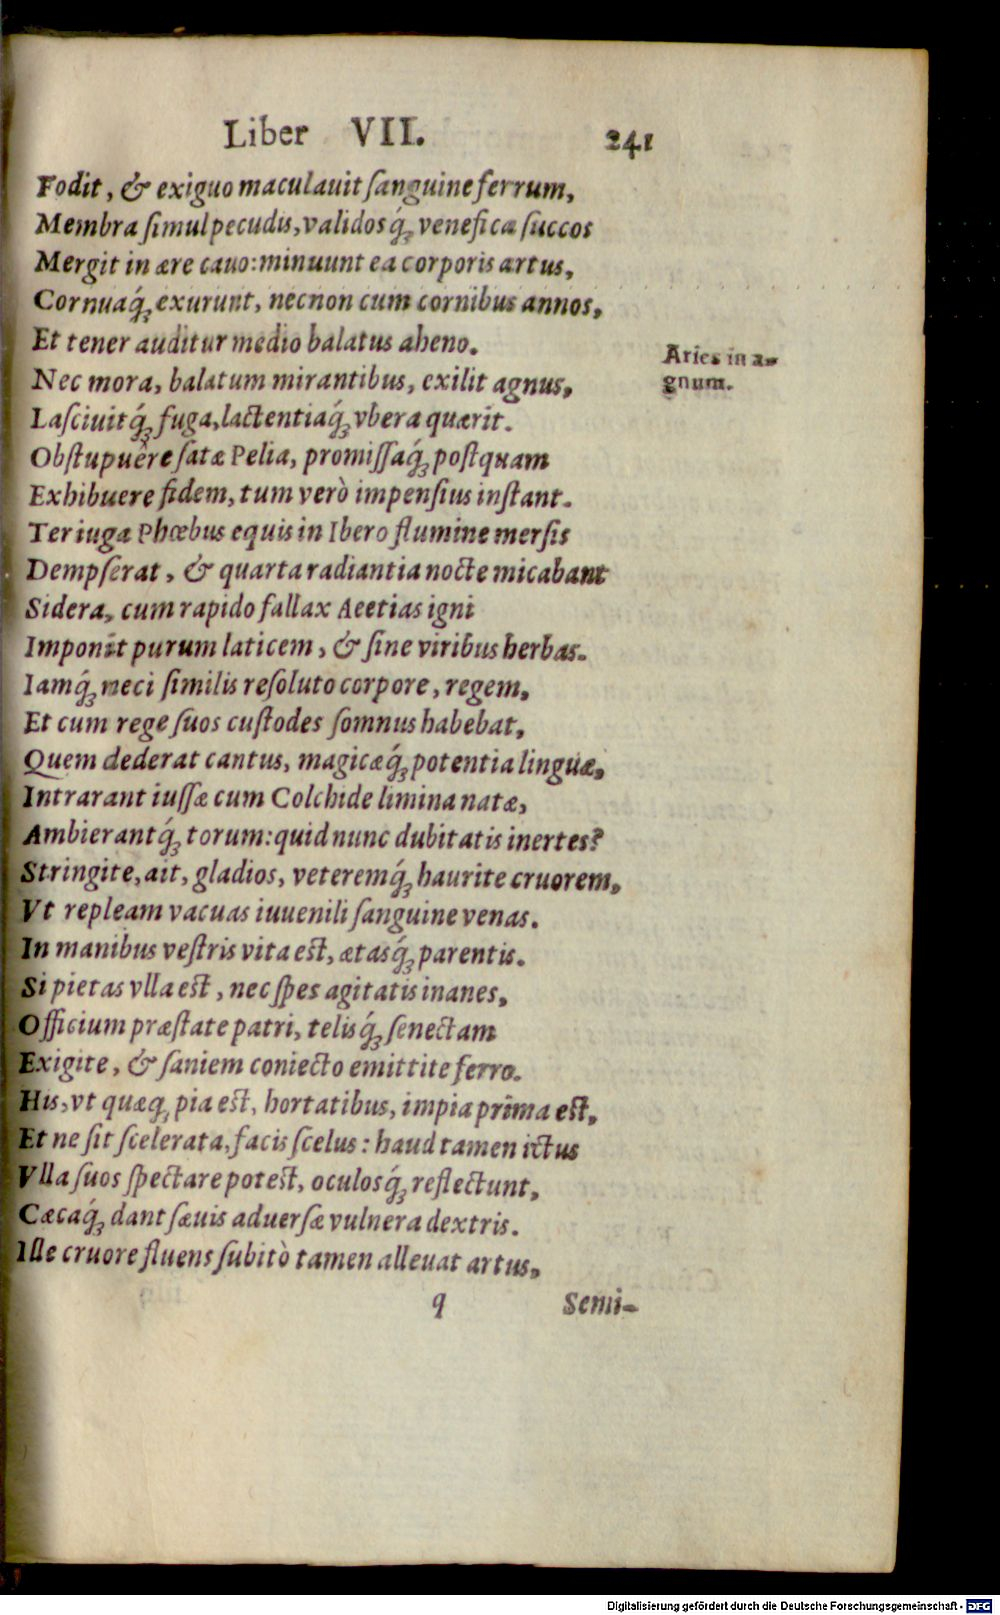 Liber VII. 241
Fodit, & exiguo maculauit ſanguine ferrum,
Membra ſimul pecudis, validosq́ꝫ venefica ſuccos
Mergit in ære cauo: minuunt ea corporis artus,
Cornuaq́ꝫ exurunt, necnon cum cornibus annos,
Et tener auditur medio balatus aheno.
Nec mora, balatum mirantibus, exilit agnus,
Aries in a-
gnum.
Laſciuitq́ꝫ fuga, lactentiaq́ꝫ vbera quærit.
Obſtupuêre ſatæ Pelia, promiſſaq́ꝫ poſtquam
Exhibuere fidem, tum verò impenſius inſtant.
Ter iuga Phœbus equis in Ibero flumine merſis
Dempſerat, & quarta radiantia nocte micabant
Sidera, cum rapido fallax Aeetias igni
Imponit purum laticem, & ſine viribus herbas.
Iamq́ꝫ neci ſimilis reſoluto corpore, regem,
Et cum rege ſuos cuſtodes ſomnus habebat,
Quem dederat cantus, magicæq́ꝫ potentia linguæ,
Intrarant iuſſæ cum Colchide limina natæ,
Ambierantq́ꝫ torum: quid nunc dubitatis inertes?
Stringite, ait, gladios, veteremq́ꝫ haurite cruorem,
Vt repleam vacuas iuuenili ſanguine venas.
In manibus veſtris vita eſt, ætasq́ꝫ parentis.
Si pietas vlla eſt, nec ſpes agitatis inanes,
Officium præſtate patri, telisq́ꝫ ſenectam
Exigite, & ſaniem coniecto emittite ferro.
His, vt quæq, pia eſt, hortatibus, impia prima eſt,
Et ne ſit ſcelerata, facis ſcelus: haud tamen ictus
Vlla ſuos ſpectare poteſt, oculosq́ꝫ reflectunt,
Cæcaq́ꝫ dant ſæuis aduerſæ vulnera dextris.
Ille cruore fluens ſubitò tamen alleuat artus,
q Semi-
Digitalisierung gefördert durch die Deutsche Forschungsgemeinschaft - DFG